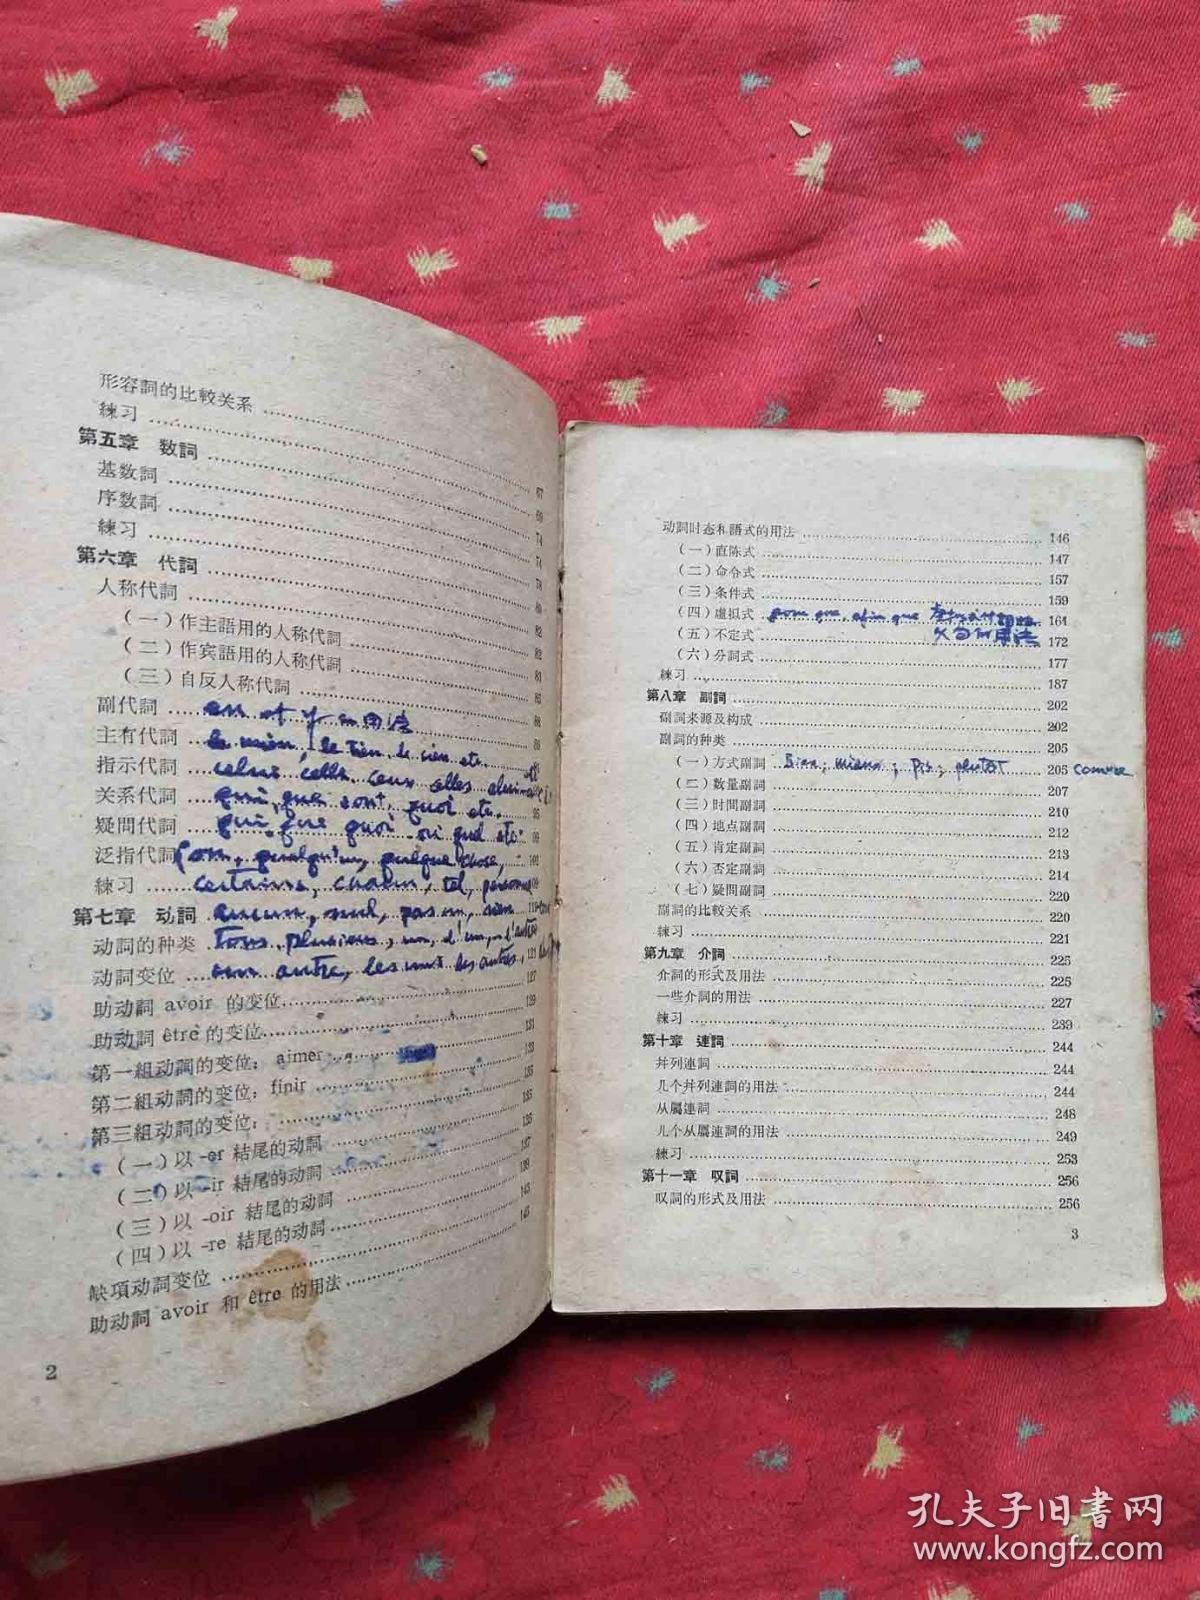 形容詞的比較关系
練习 67
第五章 数詞 69
基数詞 74
序数詞 74
練习 78
第六章 代詞 80
人称代詞 82
(一)作主語用的人称代詞 82
(二)作宾語用的人称代詞
(三)自反人称代詞
副代詞 en et y 的用法 88
主有代詞 le mien, le tien, le sien etc.
指示代詞 celui, celle, ceux celles
关系代詞 qui, que dont, quoi etc. 95
疑問代詞 qui, que quoi etc. 99
泛指代詞 quelqu'un, quelque chose,
練习 certains, chacun, tel, personne 109
第七章 动詞 aucun, nul, pas un, rien
动詞的种类 tous plusieurs, un, d'un, l'autre
动詞变位 un autre, les uns les autres, 121
助动詞 avoir 的变位 127
助动詞 être 的变位 129
第一組动詞的变位: aimer 131
第二組动詞的变位: finir 133
第三組动詞的变位: 135
(一)以 -er 結尾的动詞 135
(二)以 -ir 結尾的动詞 136
(三)以 -oir 結尾的动詞 137
(四)以 -re 結尾的动詞 139
缺項动詞变位 143
助动詞 avoir 和 être 的用法 145
2
动詞时态和語式的用法 146
(一)直陈式 147
(二)命令式 157
(三)条件式 159
(四)虛拟式 pour que, afin que 164
(五)不定式 172
(六)分詞式 177
練习 187
第八章 副詞 202
副詞来源及构成 202
副詞的种类 205
(一)方式副詞 Bien, mieux; pis; plutôt 205 comme
(二)数量副詞 207
(三)时間副詞 210
(四)地点副詞 212
(五)肯定副詞 213
(六)否定副詞 214
(七)疑問副詞 220
副詞的比較关系 220
練习 221
第九章 介詞 225
介詞的形式及用法 225
一些介詞的用法 227
練习 239
第十章 連詞 244
并列連詞 244
几个并列連詞的用法 244
从屬連詞 248
几个从屬連詞的用法 249
練习 253
第十一章 叹詞 256
叹詞的形式及用法 256
3
孔夫子旧书网
www.kongfz.com